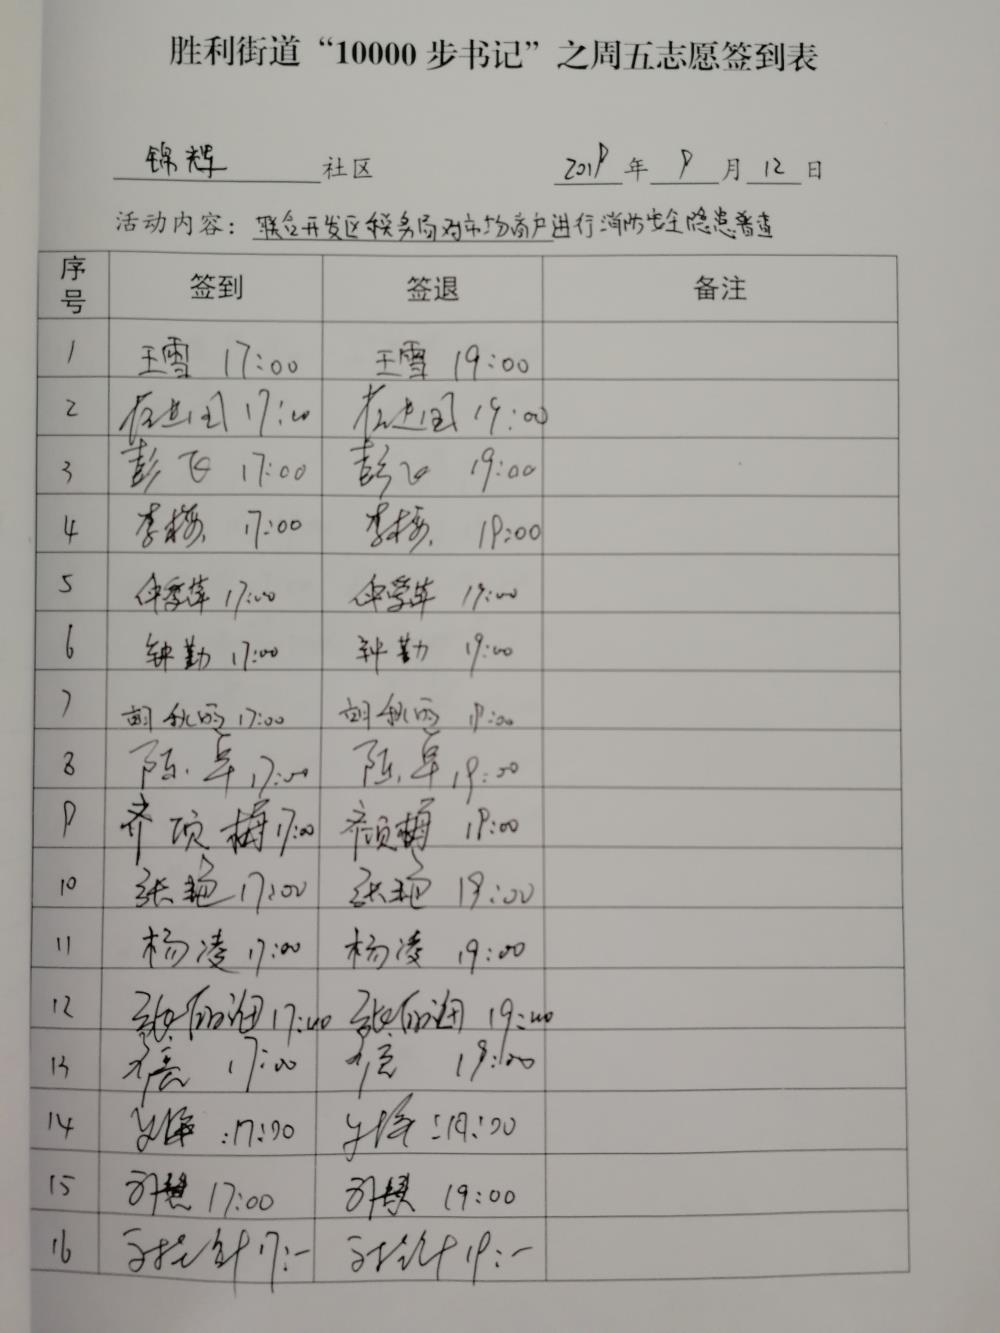 胜利街道“10000步书记”之周五志愿签到表
锦辉 社区 2019年9月12日
活动内容：联合开发区税务局对市场商户进行消防安全隐患普查
序号 签到 签退 备注
1 王雪 17:00 王雪 19:00
2 17:00 19:00
3 彭飞 17:00 彭飞 19:00
4 李梅 17:00 李梅 19:00
5 17:00 19:00
6 钟勤 17:00 钟勤 19:00
7 胡秋 17:00 胡秋 19:00
8 陈 17:00 陈 19:00
9 齐项梅 17:00 齐项梅 19:00
10 张艳 17:00 张艳 19:00
11 杨凌 17:00 杨凌 19:00
12 17:00 19:00
13 17:00 19:00
14 :17:00 :19:00
15 17:00 19:00
16 17:- 19:-